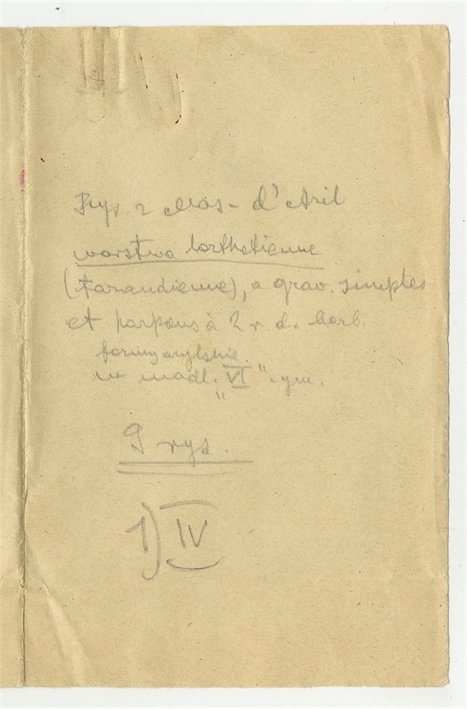 Rys. z Mas-d'Azil
warstwa lorthetienne
(tarandienne), a grav. simples
et harpons à 2 r. d. barb.
formy azylskie
w madl. "VI"-ym.
9 rys.
1) IV